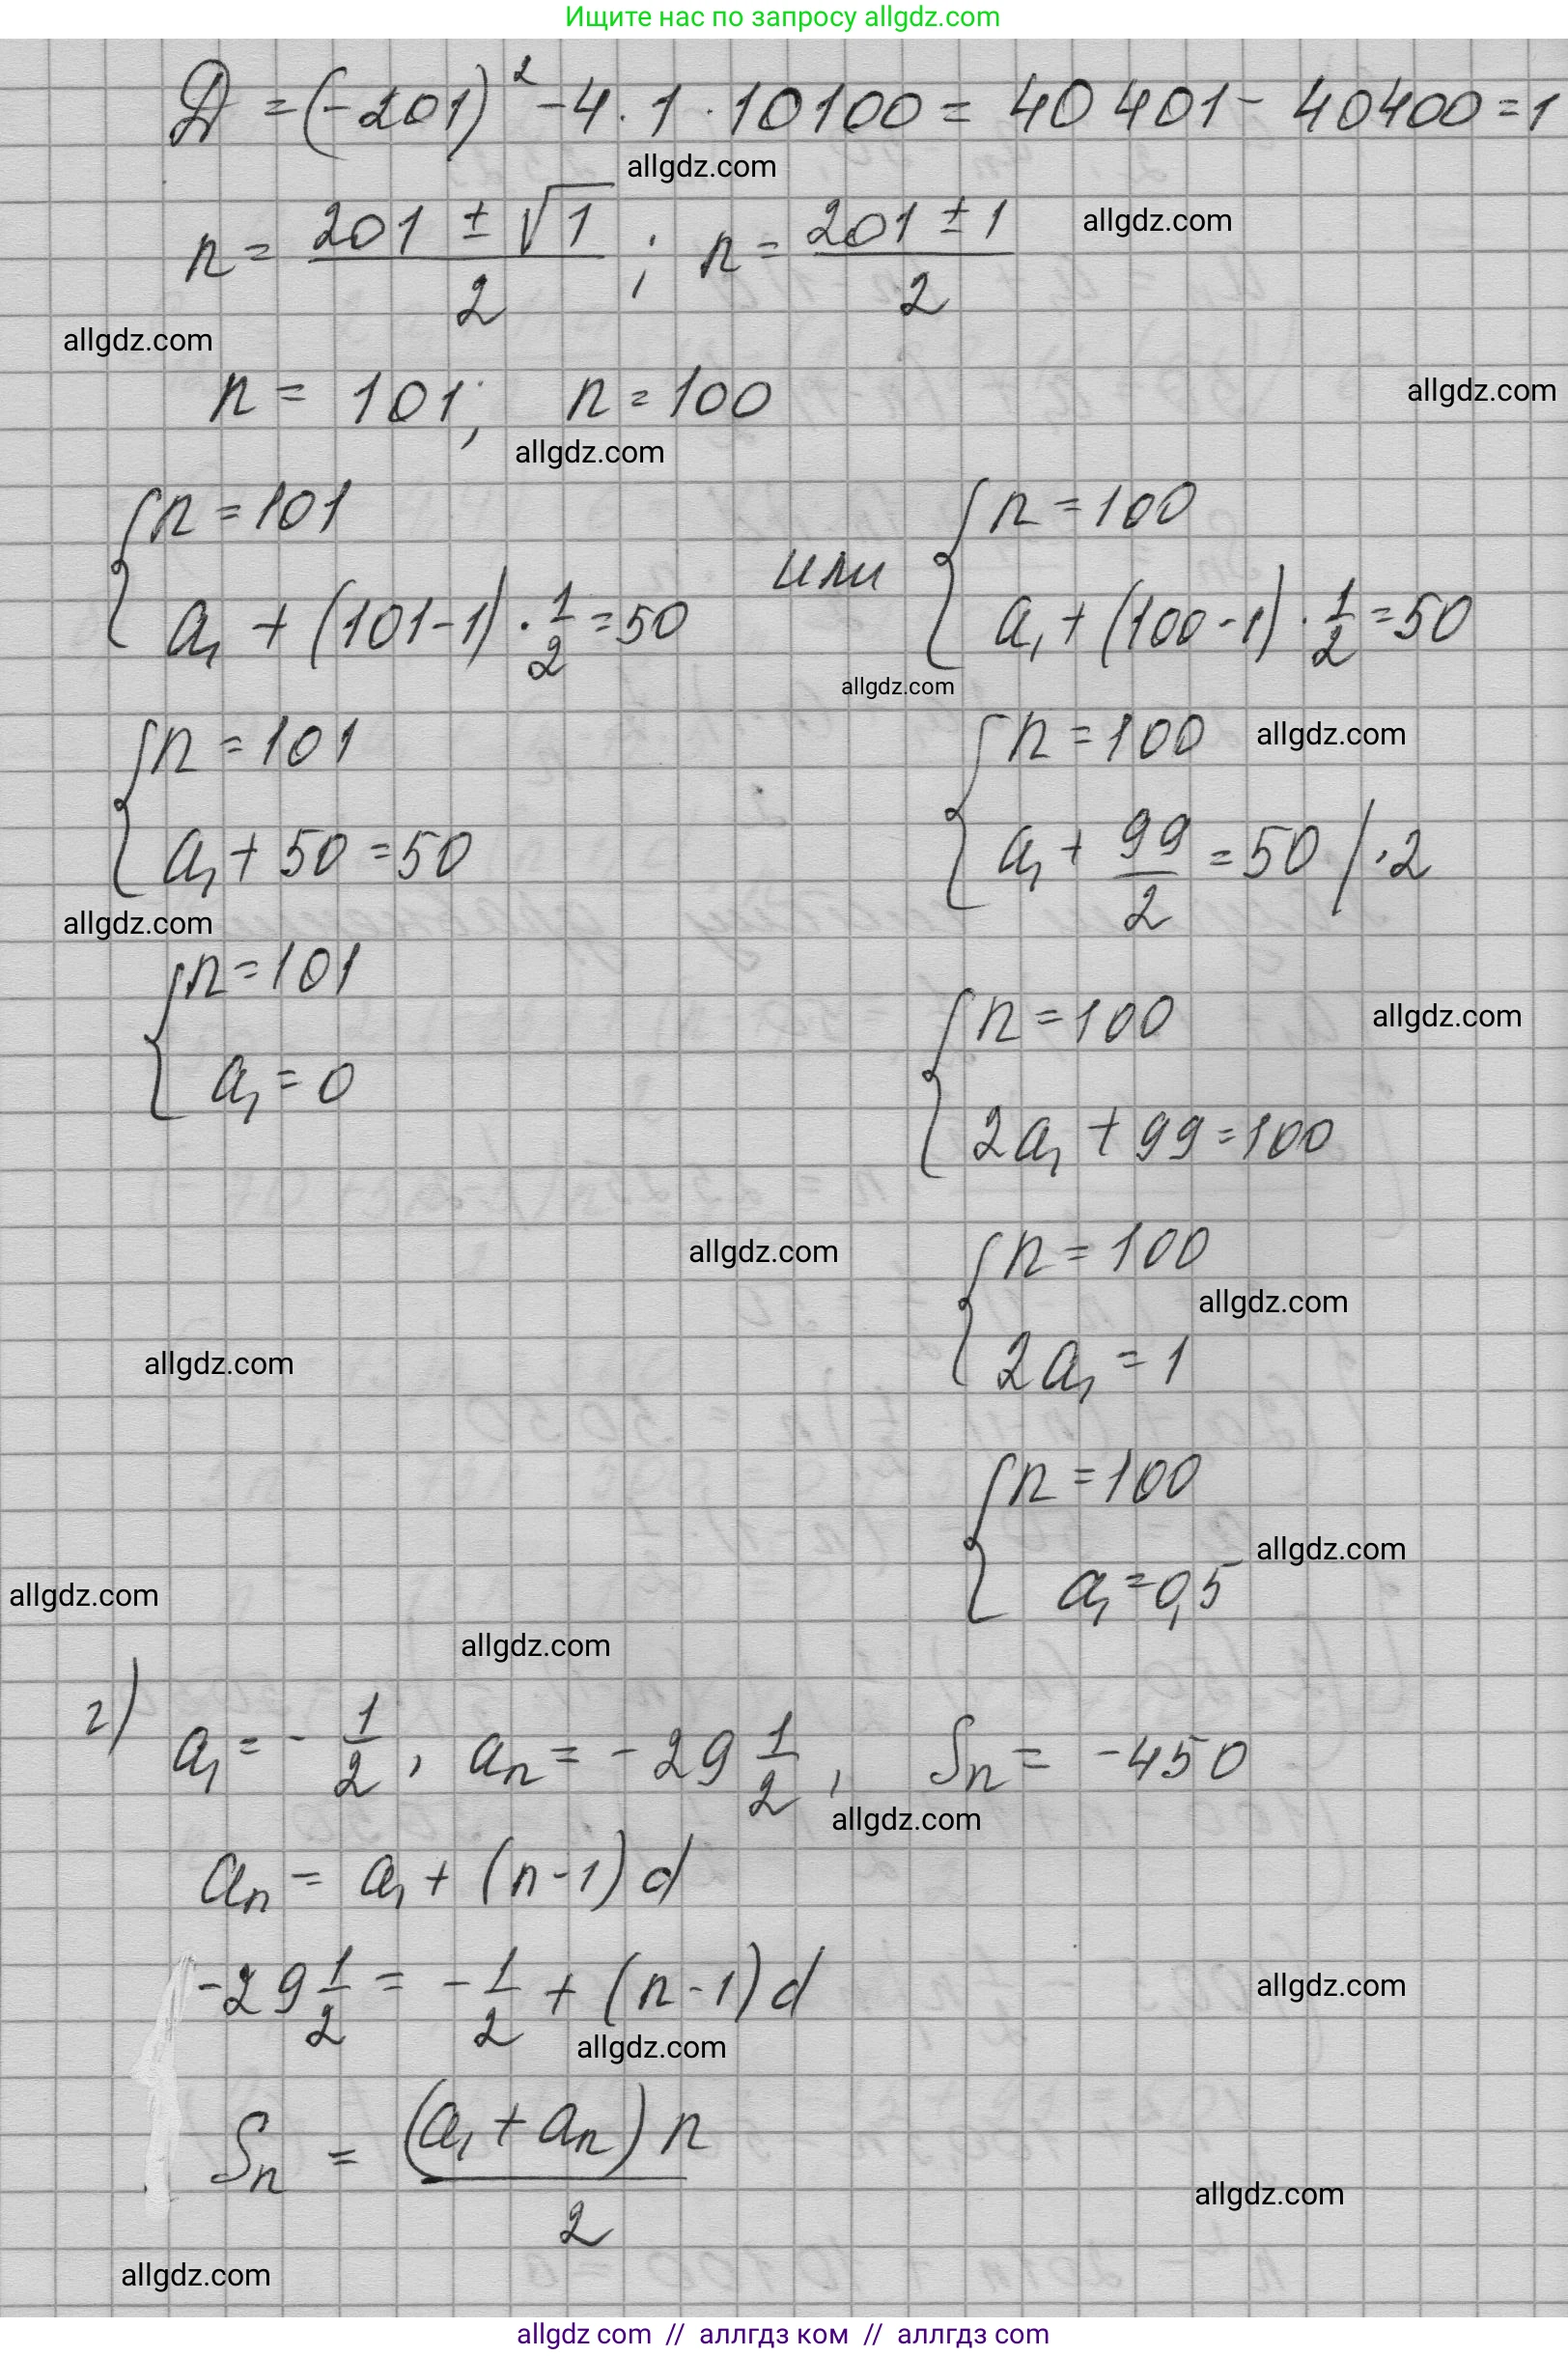 Ищите нас по запросу allgdz.com
Д = (-201)² - 4 · 1 · 10100 = 40 401 - 40400 = 1
allgdz.com
n = (201 ± √1)/2 ; n = (201 ± 1)/2
allgdz.com
allgdz.com
n = 101; n = 100
allgdz.com
allgdz.com
{ n = 101
a₁ + (101-1) · 1/2 = 50
или
{ n = 100
a₁ + (100-1) · 1/2 = 50
allgdz.com
{ n = 101
a₁ + 50 = 50
{ n = 100
allgdz.com
a₁ + 99/2 = 50 / ·2
allgdz.com
{ n = 101
a₁ = 0
{ n = 100
allgdz.com
2a₁ + 99 = 100
allgdz.com
{ n = 100
allgdz.com
2a₁ = 1
allgdz.com
{ n = 100
allgdz.com
a₁ = 0,5
allgdz.com
allgdz.com
г) a₁ = - 1/2, aₙ = - 29 1/2, Sₙ = -450
allgdz.com
aₙ = a₁ + (n-1) d
-29 1/2 = - 1/2 + (n-1) d
allgdz.com
allgdz.com
Sₙ = (a₁ + aₙ) n / 2
allgdz.com
allgdz.com
allgdz com // аллгдз ком // аллгдз com